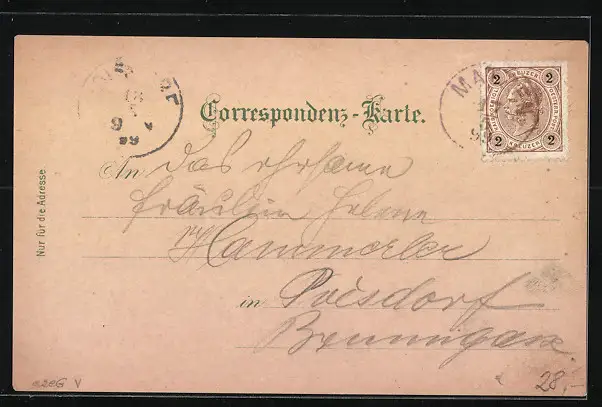 Correspondenz-Karte.
MA
2 KREUZER 2
2 KREUZER 2
9 V
99
An Das ehrsame
Fräulein Helene
Hammerler
in Poisdorf
Brunngasse
Nur für die Adresse.
28,-